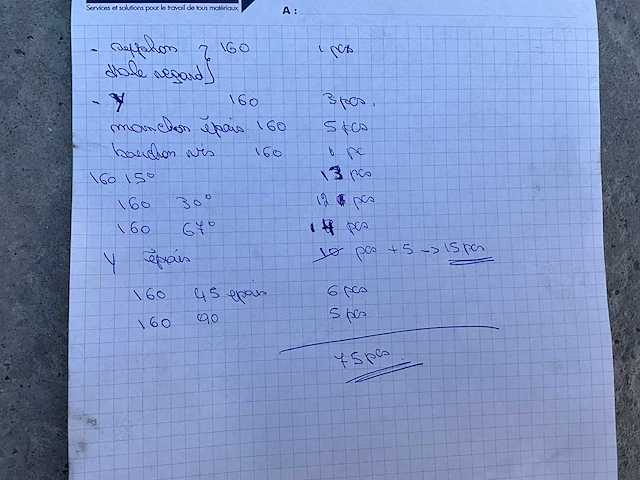 Services et solutions pour le travail de tous matériaux
A :
- 160 1 pcs
regard
- Y 160 3 pcs.
manchon épais 160 5 pcs
bouchon vis 160 1 pc
160 15° 13 pcs
160 30° 12 pcs
160 67° 14 pcs
Y épais 10 pcs + 5 -> 15 pcs
160 45 epais 6 pcs
160 90 5 pcs
75 pcs